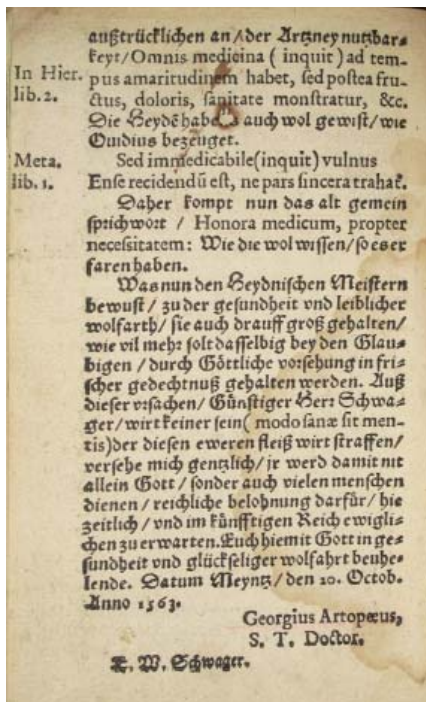 außtrücklichen an / der Artzney nutzbar⸗
keyt / Omnis medicina ( inquit ) ad tem⸗
In Hier. lib. 2.
pus amaritudinem habet, sed postea fru⸗
ctus, doloris, sanitate monstratur, &c.
Die Heydē haben's auch wol gewist / wie
Ouidius bezeuget.
Meta. lib. 1.
Sed immedicabile (inquit) vulnus
Ense recidendū est, ne pars sincera trahat.
Daher kompt nun das alt gemein
sprichwort / Honora medicum, propter
necessitatem : Wie die wol wissen / so es er
faren haben.
Was nun den Heydnischen Meistern
bewust / zu der gesundheit vnd leiblicher
wolfarth / sie auch drauff groß gehalten /
wie vil mehr solt dasselbig bey den Glau⸗
bigen / durch Göttliche vorsehung in fri⸗
scher gedechtnuß gehalten werden. Auß
dieser vrsachen / Günstiger Herr Schwa⸗
ger / wirt keiner sein ( modo sanæ sit men⸗
tis) der diesen eweren fleiß wirt straffen /
versehe mich gentzlich / jr werd damit nit
allein Gott / sonder auch vielen menschen
dienen / reichliche belohnung darfür / hie
zeitlich / vnd im künfftigen Reich ewigli⸗
chen zu erwarten. Euch hiemit Gott in ge⸗
sundheit vnd glückseliger wolfahrt beuhe⸗
lende. Datum Meyntz / den 20. Octob.
Anno 1563.
Georgius Artopœus,
S. T. Doctor.
E. W. Schwager.